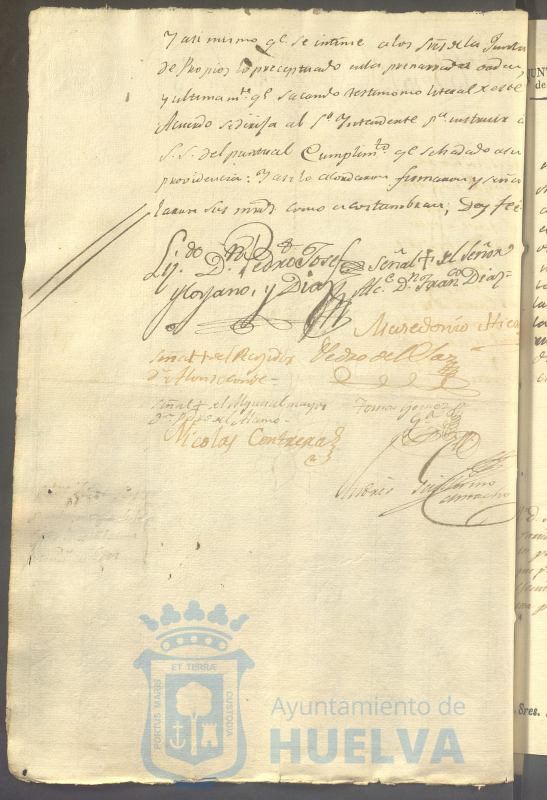 Y asi mismo qe. se intime a los Sres. de la Junta
de Propios lo preceptuado en la prenarrada orden
y ultimamte. qe. sacando testimonio literal de este
Acuerdo se dirija al Sr. Yntendente pa. instruir a
S. S. del puntual Cumplimto. qe. se ha dado a su
providencia: Y asi lo acordaron firmaron y seña
laron sus mrds. como acostumbran; Doy feé-
Liz.do Dn. Pedro Josef
y Loyzano, y Diaz
Señal + del Señor
Alc.e Dn. Fran.co Diaz-
Macedonio
Señal + del Regidor
Dn. Alonso Conde-
Pedro del
Señal + el Alguacil mayor
Dn. Pedro el Alamo-
Tomas Gomez
Ga.
Nicolas Contreras
Andres Guillermo
Camacho
PORTUS MARIS ET TERRÆ CUSTODIA
Ayuntamiento de
HUELVA
Sres.